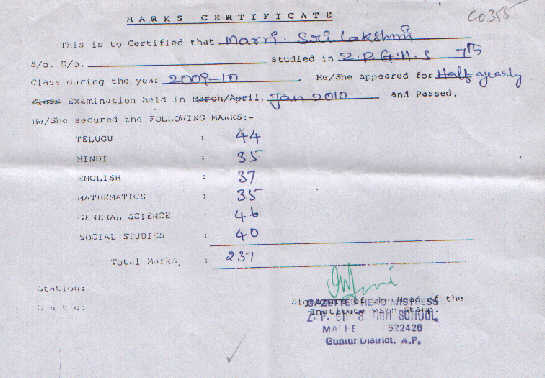 MARKS CERTIFICATE
This is to Certified that Marri. Sri Lakshmi
S/o. D/o. studied in Z.P.G.H.S 7th
Class during the year 2009-10 He/She appeared for Half yearly
Class Examination held in March/April. Jan 2010 and Passed.
He/She secured the FOLLOWING MARKS:-
TELUGU : 44
HINDI : 35
ENGLISH : 37
MATHEMATICS : 35
GENERAL SCIENCE : 46
SOCIAL STUDIES : 40
Total Marks : 237
Station:
Date:
Signature of the Head of the
Institute with Stamp
GAZETTED HEAD MISTRESS
Z.P. HIGH SCHOOL
522426
Guntur District, A.P.